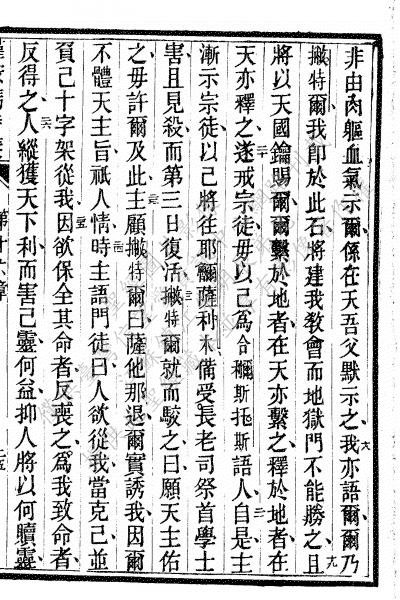 非由肉軀血氣示爾係在天吾父默示之我亦語爾爾乃
撇特爾我卽於此石將建我敎會而地獄門不能勝之且
將以天國鑰賜爾爾繫於地者在天亦繫之釋於地者在
天亦釋之遂戒宗徒毋以己爲合穪斯托斯語人自是主
漸示宗徒以己將往耶穪薩利木備受長老司祭首學士
害且見殺而第三日復活撇特爾就而駁之曰願天主佑
之毋許爾及此主顧撇特爾曰薩他那退爾實誘我因爾
不體天主旨祇人情時主語門徒曰人欲從我當克己並
負己十字架從我因欲保全其命者反喪之爲我致命者
反得之人縱獲天下利而害己靈何益抑人將以何贖靈
第十六章